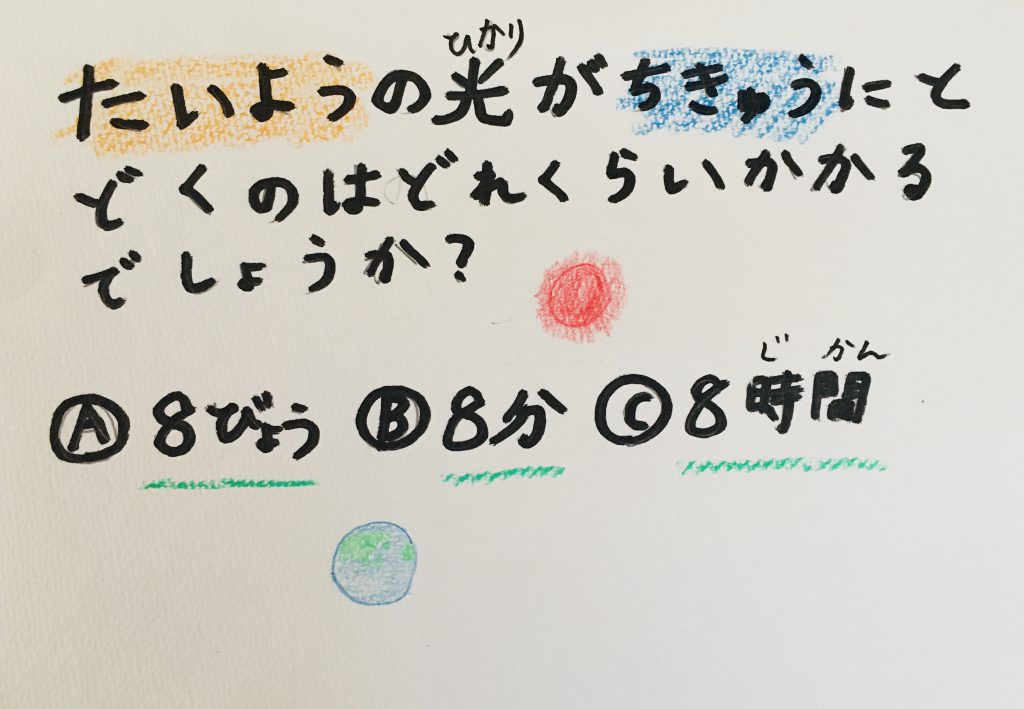 ひかり
たいようの光がちきゅうにと
どくのはどれくらいかかる
でしょうか?
じかん
Ⓐ8びょう Ⓑ8分 Ⓒ8時間